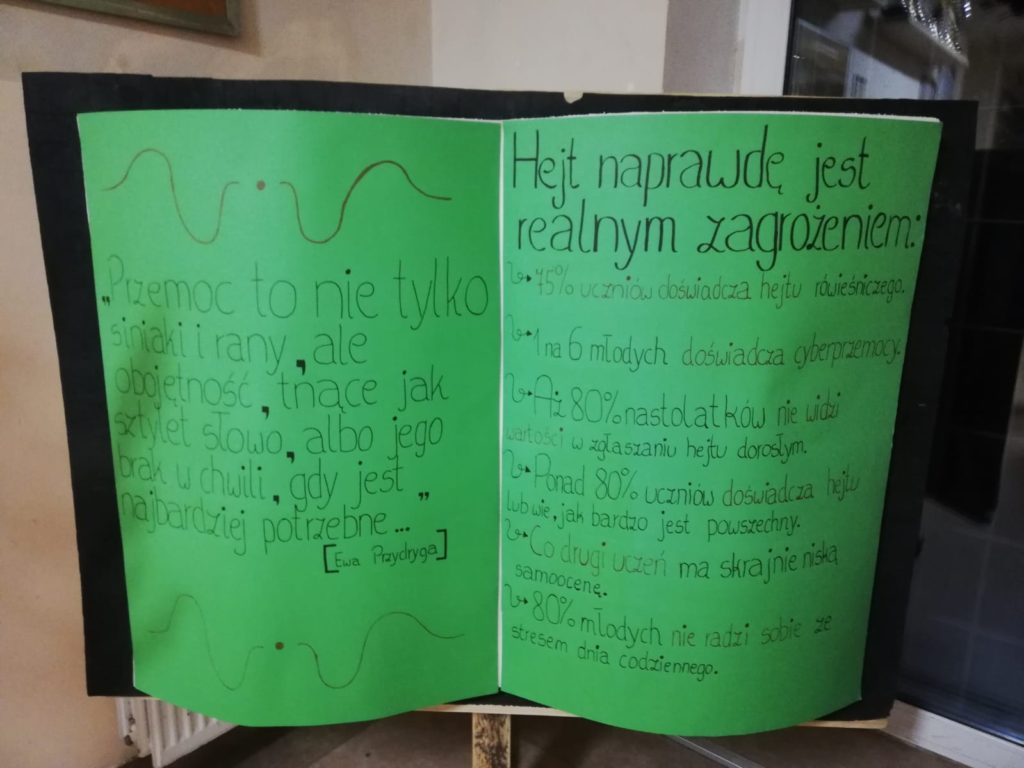 „Przemoc to nie tylko
siniaki i rany, ale
obojętność, tnące jak
sztylet słowo, albo jego
brak w chwili, gdy jest
najbardziej potrzebne..."
[Ewa Przydryga]
Hejt naprawdę jest
realnym zagrożeniem:
75% uczniów doświadcza hejtu rówieśniczego.
1 na 6 młodych doświadcza cyberprzemocy.
Aż 80% nastolatków nie widzi
wartości w zgłaszaniu hejtu dorosłym.
Ponad 80% uczniów doświadcza hejtu
lub wie, jak bardzo jest powszechny.
Co drugi uczeń ma skrajnie niską
samoocenę.
80% młodych nie radzi sobie ze
stresem dnia codziennego.